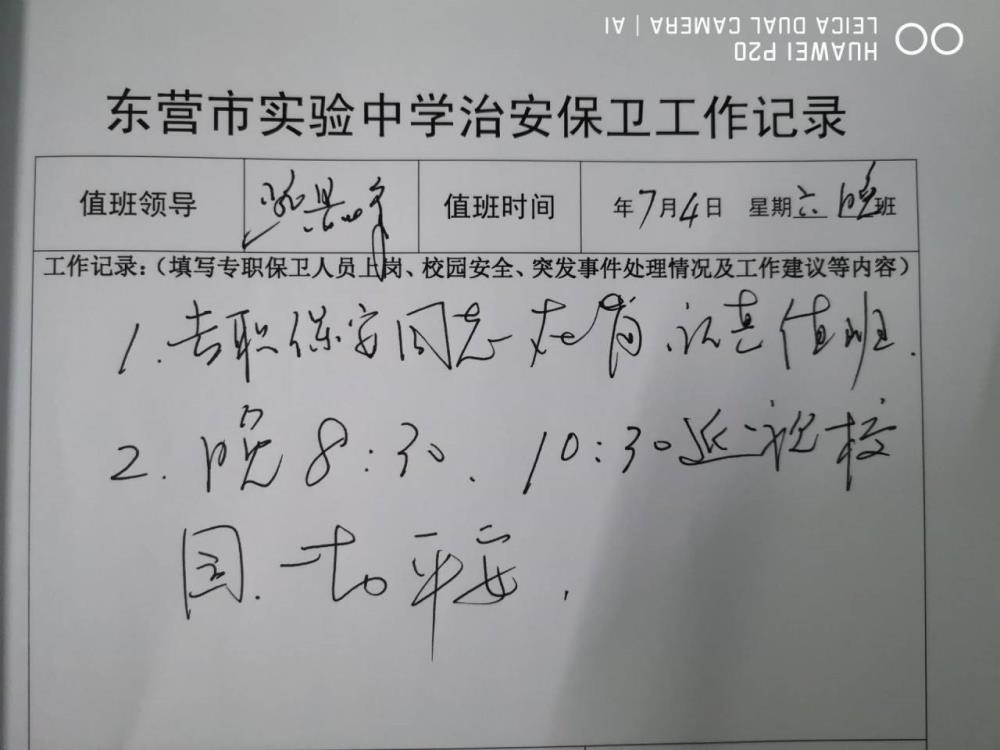 HUAWEI P20
LEICA DUAL CAMERA | AI
东营市实验中学治安保卫工作记录
值班领导 值班时间 年7月4日 星期六 晚班
工作记录:(填写专职保卫人员上岗、校园安全、突发事件处理情况及工作建议等内容)
1. 专职保安同志在岗、认真值班.
2. 晚8:30、10:30巡视校
园.一切平安.